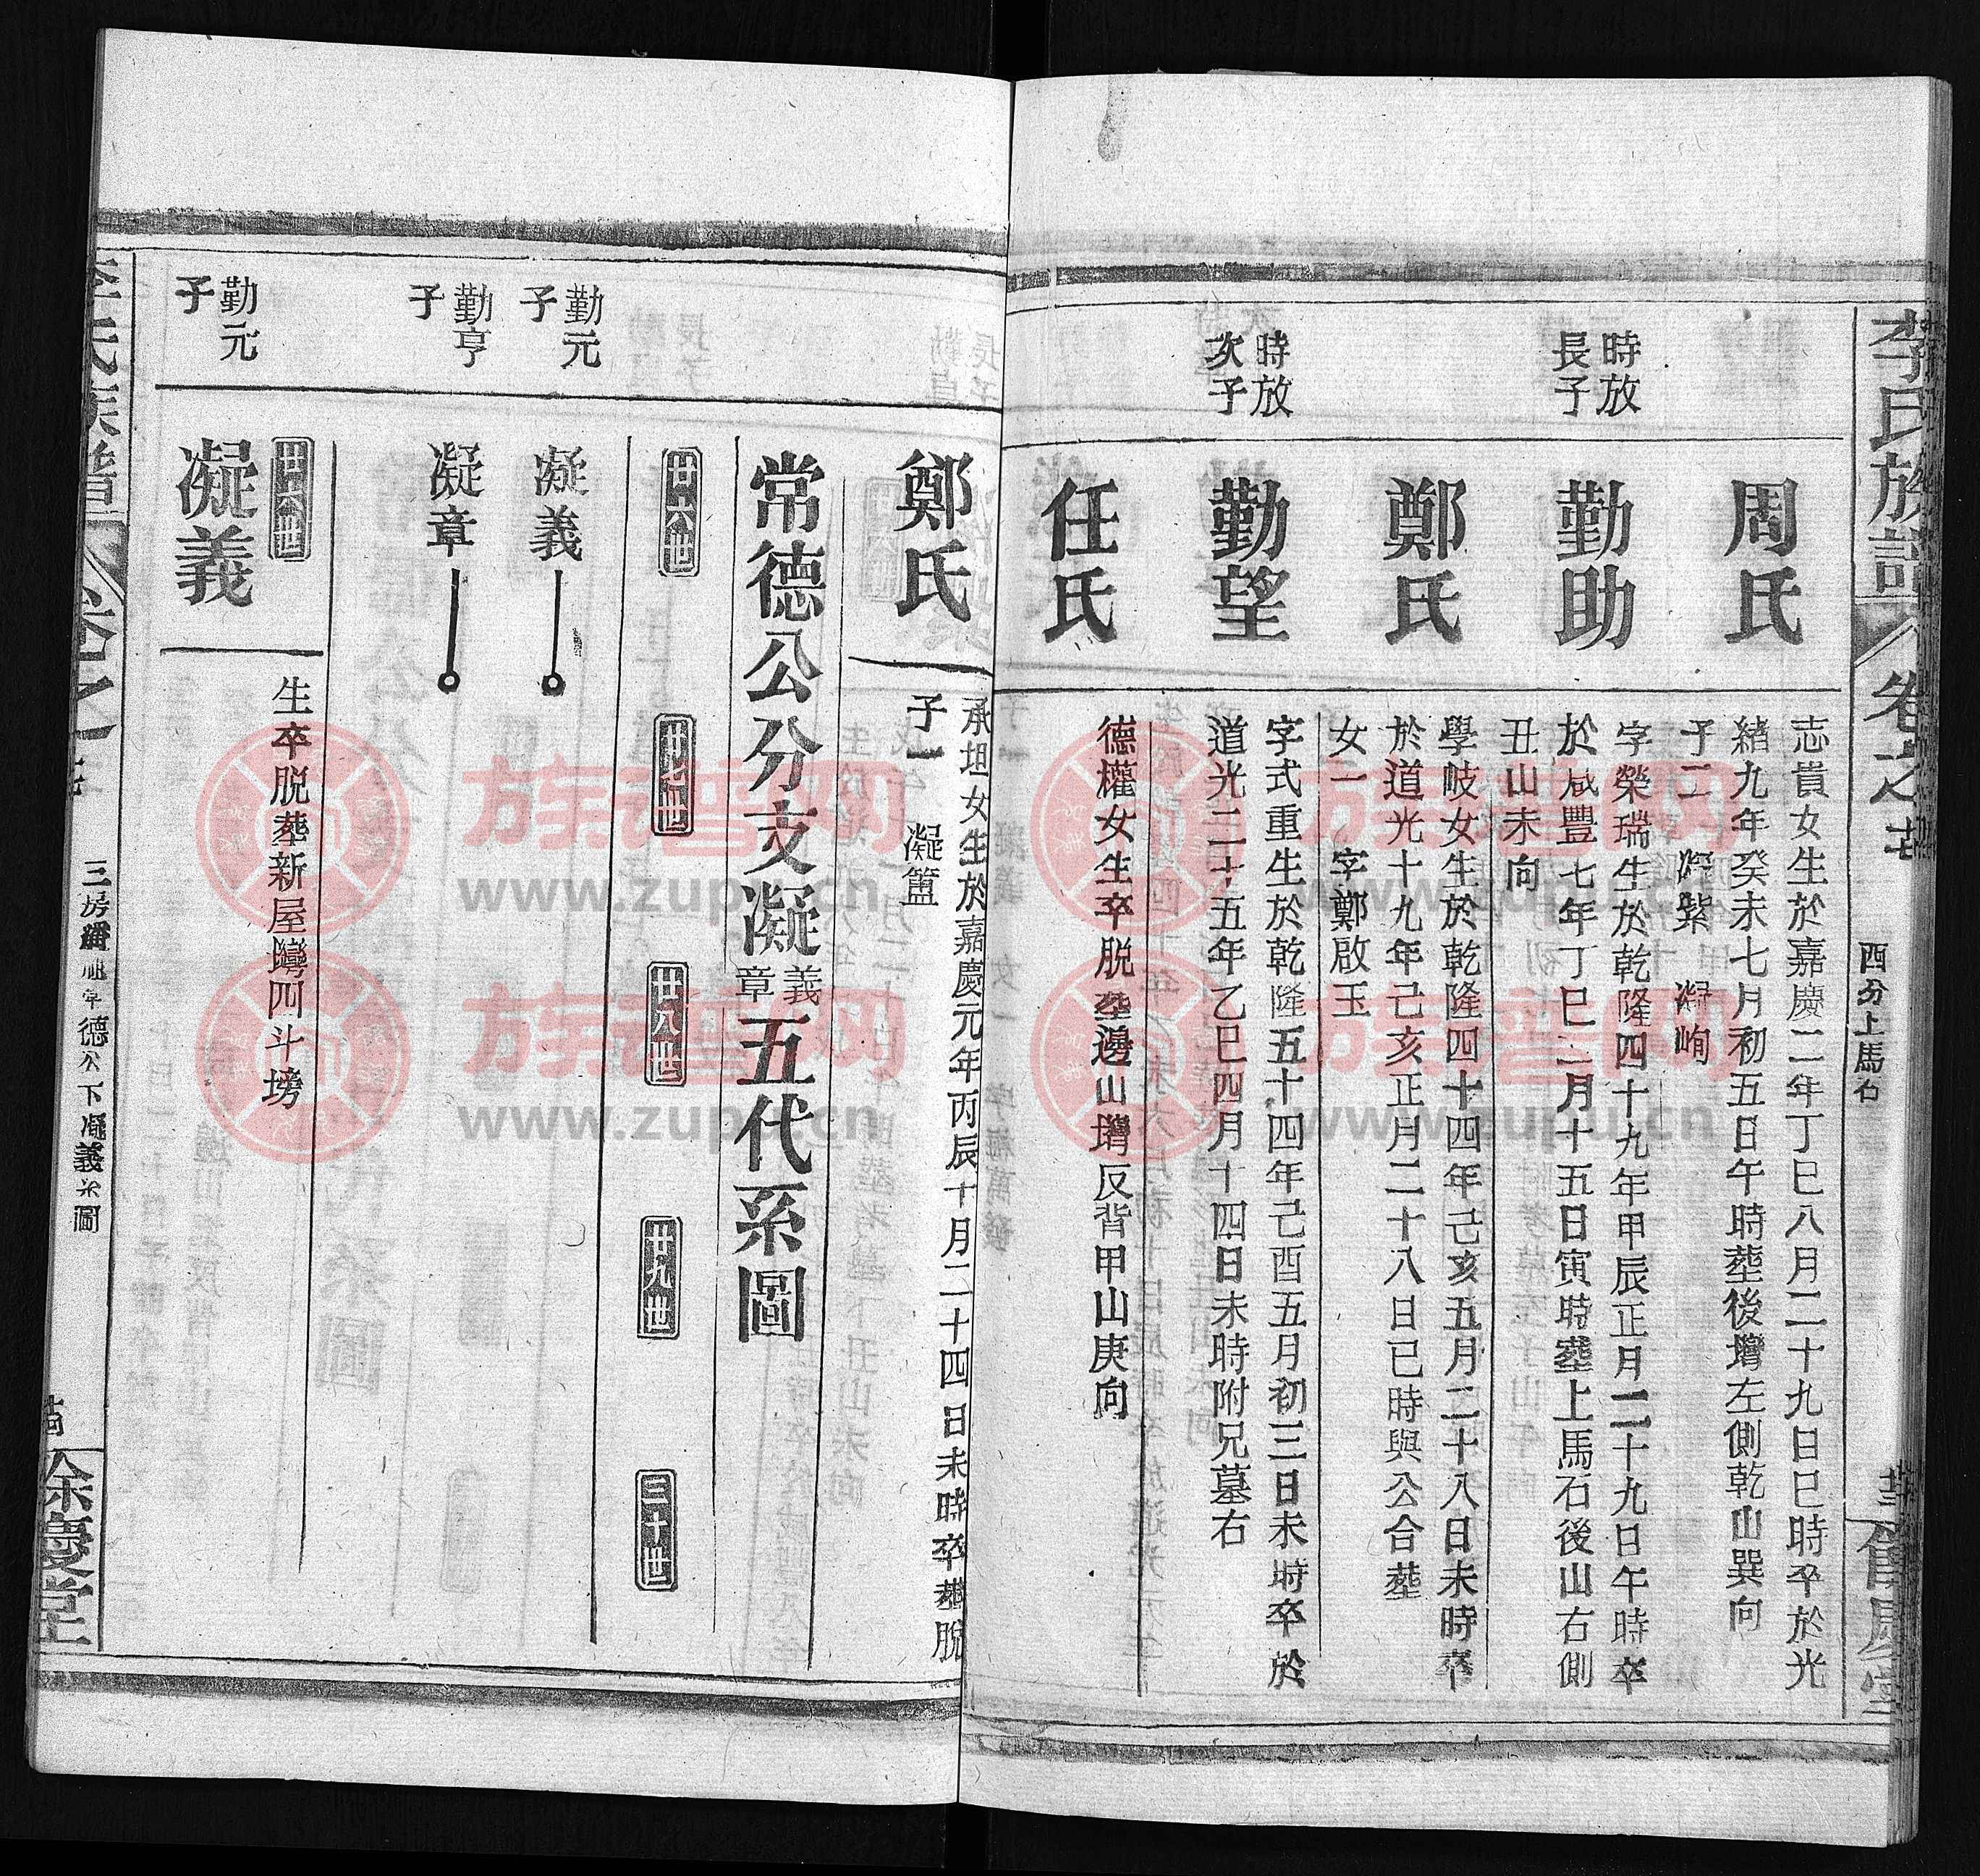 李氏族譜
卷之
四分上馬石
周氏
志貴女生於嘉慶二年丁巳八月二十九日巳時卒於光
緒九年癸未七月初五日午時葬後塆左側乾山巽向
子二　凝紫　凝峋
時放
長子
勤助
字榮瑞生於乾隆四十九年甲辰正月二十九日午時卒
於咸豐七年丁巳二月十五日寅時葬上馬石後山右側
丑山未向
鄭氏
學岐女生於乾隆四十四年己亥五月二十八日未時卒
於道光十九年己亥正月二十八日巳時與公合葬
女一　字鄭啟玉
時放
次子
勤望
字式重生於乾隆五十四年己酉五月初三日未時卒於
道光二十五年乙巳四月十四日未時附兄墓右
任氏
德權女生卒脫葬邊山塆反背甲山庚向
鄭氏
承坦女生於嘉慶元年丙辰十月二十四日未時卒葬脫
子一　凝簠
常德公分支凝義章五代系圖
廿六世
廿七世
廿八世
廿九世
三十世
勤元
子
凝義
勤亨
子
凝章
廿六世
勤元
子
凝義
生卒脫葬新屋塆四斗塝
李氏族譜
卷之
三房　德公下凝義系圖
餘慶堂
www.zupu.cn
族譜网
www.zupu.cn
族譜网
www.zupu.cn
族譜网
www.zupu.cn
族譜网